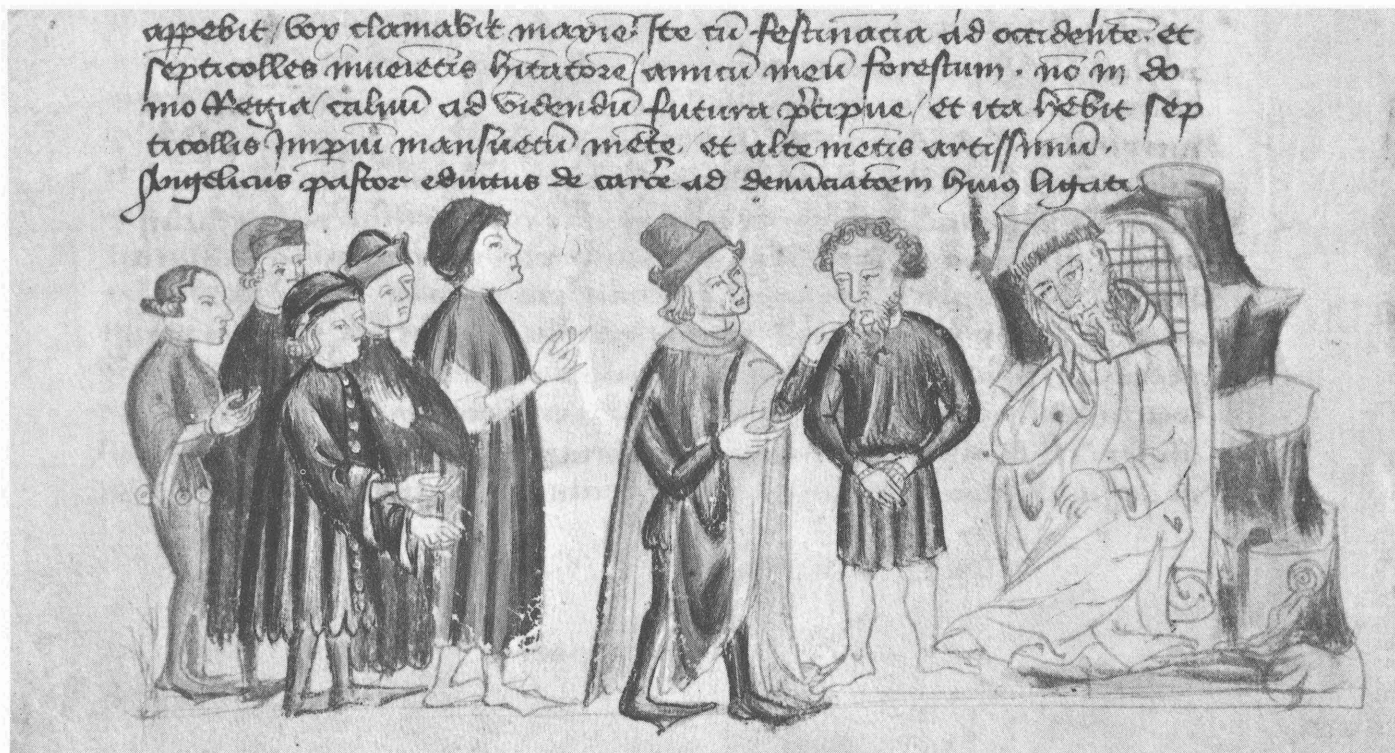 appebit / vox clamabit maxīe. Ite cū festinācia ad occidentē. et
septicolles īvēietis hītatorē / amicū meū forestum. nō in do
mo Regia / calvū ad videndū futura p̄cipue / et ita hēbit sep
ticollis Impiū mansuetū mēte. et alte mētis artissimū.
Angelicus pastor eductus de carcē ad denūciatōem huiꝰ ligati